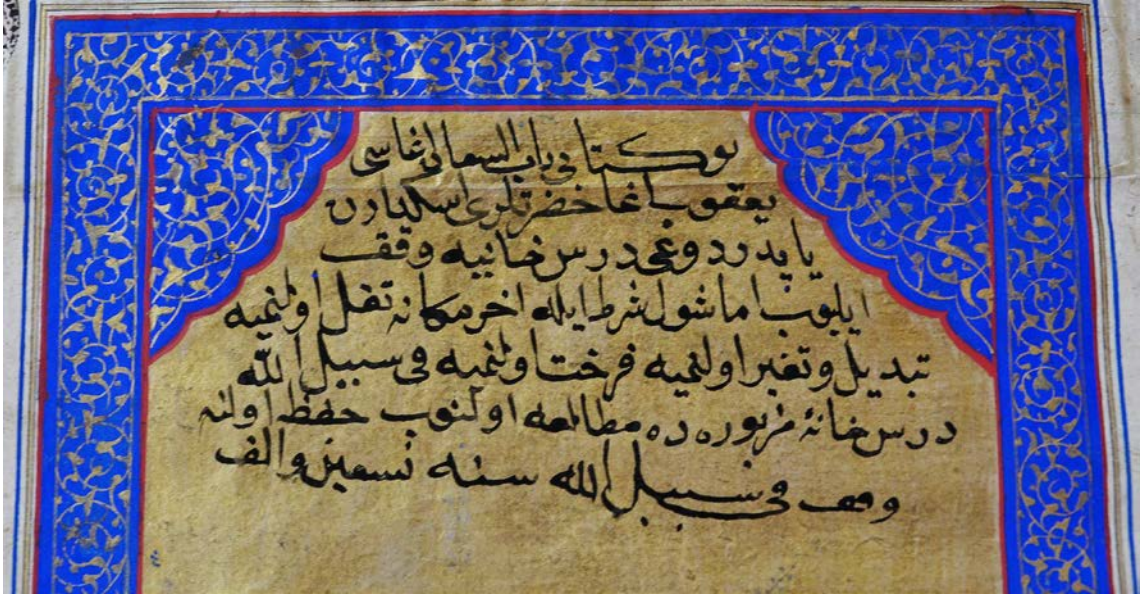 بو كتابى باب السعاده اغاسى
يعقوب اغا حضرتلرى اسكدارده
ياپدردوغى درس خانيه وقف
ايليوب اما شول شرط ايله اخر مكانه نقل اولنميه
تبديل و تغير اولنميه فرخت اولنميه فى سبيل الله
درس خانۀ مزبوره ده مطالعه اولنوب حفظ اولنه
وقف فى سبيل الله سنه تسعين والف